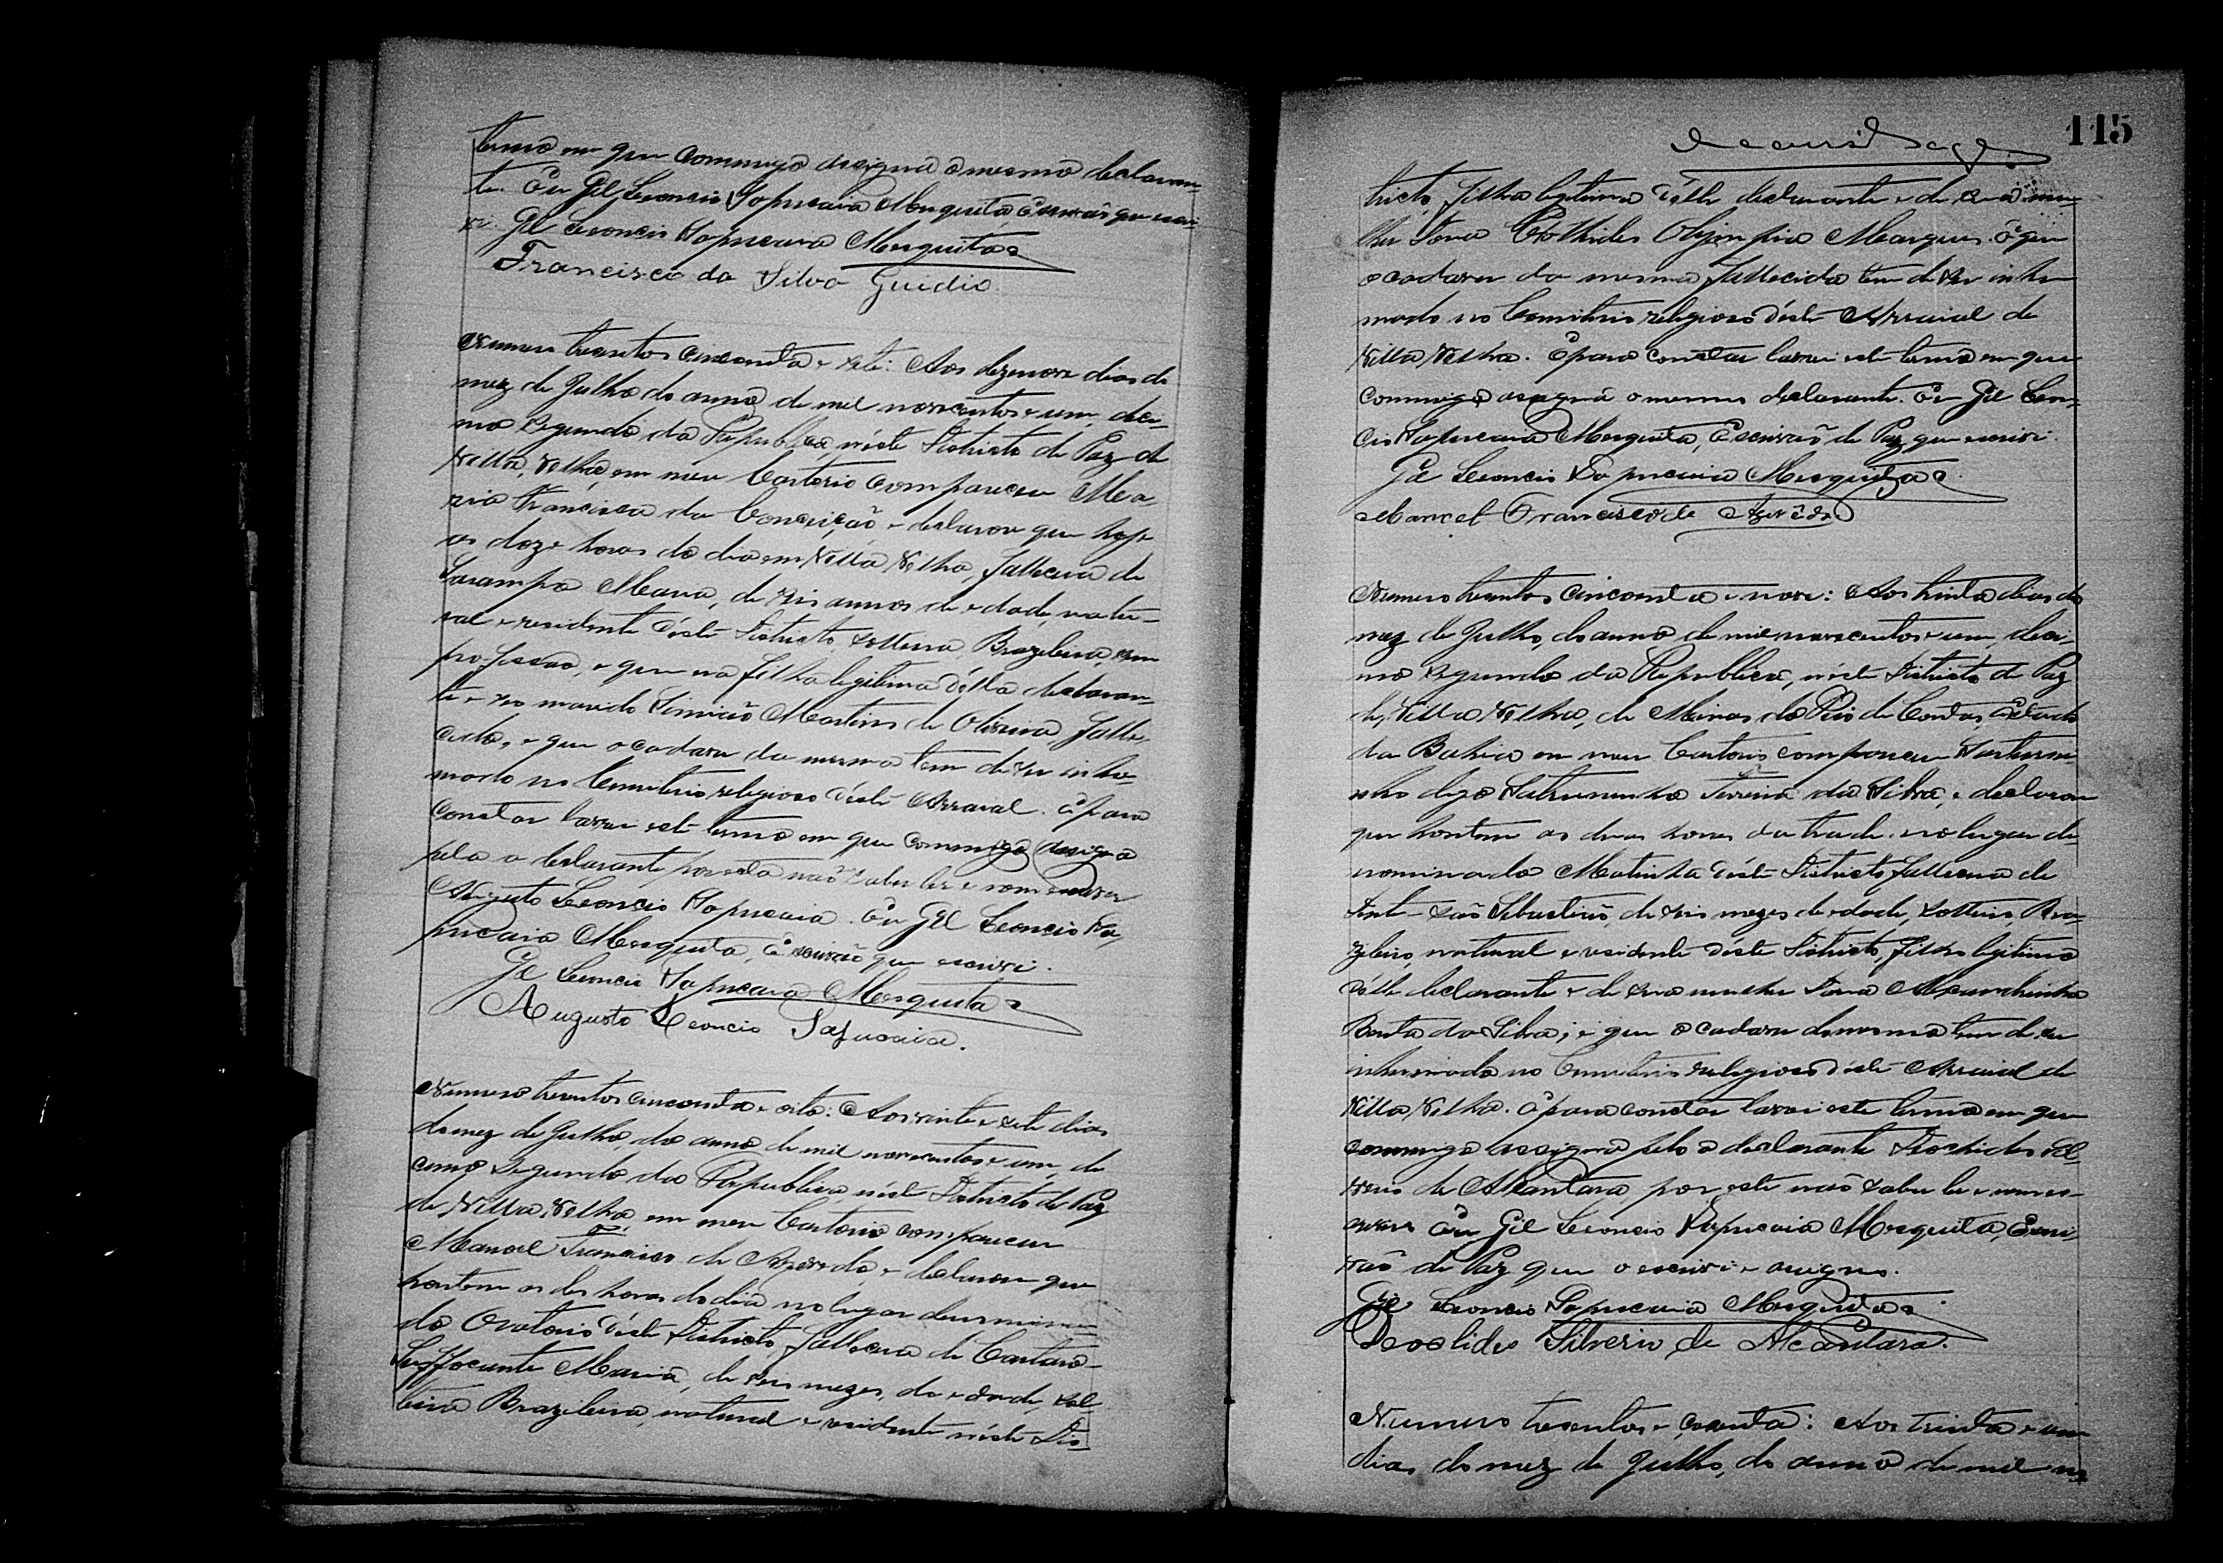 termo em que commigo assigna o mesmo declaran-
te. Eu Gil Leoncio Sapucaia Mesquita, Escrivaõ que escre-
vi. Gil Leoncio Sapucaia Mesquita
Francisco da Silva Guidio
Numero trezentos cincoenta e sete: Aos dezenove dias do
mez de Julho do anno de mil novecentos e um, deci-
mo segundo da Republica, n'este Districto de Paz de
Villa Velha, em meu Cartorio compareceu Ma-
ria Francisca da Conceição e declarou que hoje
as doze horas do dia em Villa Velha, falleceu de
Sarampo Maria, de seis annos de edade, natu-
ral e residente d'este Districto, solteira, Brazileira, sem
profissaõ, e que era filha legitima d'ella declaran-
te e seo marido Simião Martins de Oliveira, falle-
cido, e que o cadaver da mesma tem de ser inhu-
mado no Cemiterio religioso d'este Arraial. E para
constar lavrei este termo em que commigo assigna
pela a declarante, por esta naõ saber ler e nem escrever
Augusto Leoncio Sapucaia. Eu Gil Leoncio Sa-
pucaia Mesquita, Escrivaõ que escrevi.
Gil Leoncio Sapucaia Mesquita
Augusto Leoncio Sapucaia.
Numero trezentos cincoenta e oito: Aos vinte e sete dias
do mez de Julho, do anno de mil novecentos e um, de
cimo segundo da Republica, n'este Districto de Paz
de Villa Velha, em meu Cartorio compareceu
Manoel Francisco de Azevedo, e declarou que
hontem as dez horas do dia no lugar denomina-
do Oratorio d'este Districto, falleceu de Catarro
Suffocante Maria, de seis mezes, de edade, sol-
teira Brazileira, natural e residente n'este Dis-
115
tricto, filha legitima d'elle declarante e de sua mu-
lher Dona Olympia Marques. E que
o cadaver da mesma fallecida tem de ser inhu-
mado no Cemiterio religioso d'este Arraial de
Villa Velha. E para constar lavrei este termo em que
commigo assigna o mesmo declarante. Eu Gil Leon-
cio Sapucaia Mesquita, Escrivaõ de Paz que escrevi.
Gil Leoncio Sapucaia Mesquita
Manoel Francisco de Azevêdo
Numero trezentos cincoenta e nove: Aos trinta dias do
mez de Julho, do anno de mil novecentos e um, deci-
mo segundo da Republica, n'este Districto de Paz
de Villa Velha, de Minas do Rio de Contas, Estado
da Bahia em meu Cartorio compareceu Saturni-
nho digo Saturninho Ferreira da Silva, e declarou
que hontem as duas horas da tarde, no lugar de-
nominado Matinha d'este Districto falleceu de
Sebastiaõ, de seis mezes de edade, solteiro, Bra-
zileiro, natural e residente d'este Districto, filho legitimo
d'elle declarante e de sua mulher Dona
da Silva; e que o cadaver do mesmo tem de ser
inhumado no Cemiterio religioso d'este Arraial de
Villa Velha. E para constar lavrei este termo em que
commigo assigna pelo o declarante Sil-
verio de Alcantara, por este naõ saber ler e nem es-
crever Eu Gil Leoncio Sapucaia Mesquita, Escri-
vaõ de Paz que o escrevi e assigno.
Gil Leoncio Sapucaia Mesquita
Deoclides Silverio de Alcantara.
Numero trezentos e secenta: Aos trinta e um
dias do mez de Julho, do anno de mil no